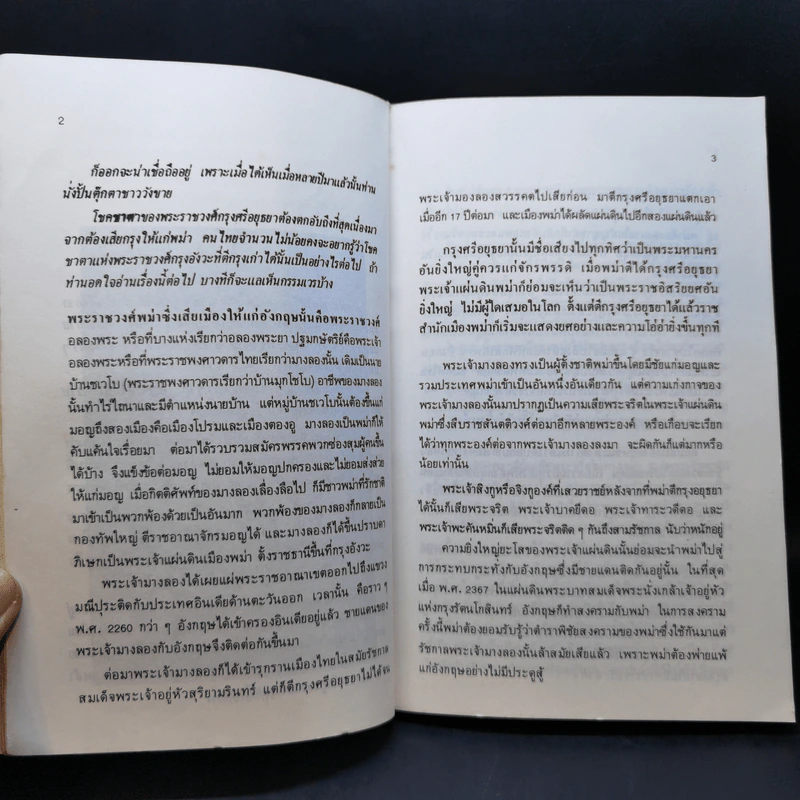 2
ก็ออกจะน่าเชื่อถืออยู่ เพราะเมื่อได้เห็นเมื่อหลายปีมาแล้วนั้นท่าน
นั่งปั้นตุ๊กตาชาววังขาย
โชคชาตาของพระราชวงศ์กรุงศรีอยุธยาต้องตกอับถึงที่สุดเนื่องมา
จากต้องเสียกรุงให้แก่พม่า คนไทยจำนวนไม่น้อยคงจะอยากรู้ว่าโชค
ชาตาแห่งพระราชวงศ์กรุงอังวะที่ตีกรุงเก่าได้นั้นเป็นอย่างไรต่อไป ถ้า
ท่านอดใจอ่านเรื่องนี้ต่อไป บางทีก็จะแลเห็นกรรมเวรบ้าง
พระราชวงศ์พม่าซึ่งเสียเมืองให้แก่อังกฤษนั้นคือพระราชวงศ์
อลองพระ หรือที่บางแห่งเรียกว่าอลองพระยา ปฐมกษัตริย์คือพระเจ้า
อลองพระหรือที่พระราชพงศาวดารไทยเรียกว่ามางลองนั้น เดิมเป็นนาย
บ้านชเวโบ (พระราชพงศาวดารเรียกว่าบ้านมุกโชโบ) อาชีพของมางลอง
นั้นทำไร่ไถนาและมีตำแหน่งนายบ้าน แต่หมู่บ้านชเวโบนั้นต้องขึ้นแก่
มอญถึงสองเมืองคือเมืองโปรมและเมืองตองอู มางลองเป็นพม่าก็ให้
คับแค้นใจเรื่อยมา ต่อมาได้รวบรวมสมัครพรรคพวกซ่องสุมผู้คนขึ้น
ได้บ้าง จึงแข็งข้อต่อมอญ ไม่ยอมให้มอญปกครองและไม่ยอมส่งส่วย
ให้แก่มอญ เมื่อกิตติศัพท์ของมางลองเลื่องลือไป ก็มีชาวพม่าที่รักชาติ
มาเข้าเป็นพวกพ้องด้วยเป็นอันมาก พวกพ้องของมางลองก็กลายเป็น
กองทัพใหญ่ ตีราชอาณาจักรมอญได้ และมางลองก็ได้ขึ้นปราบดา
ภิเษกเป็นพระเจ้าแผ่นดินเมืองพม่า ตั้งราชธานีขึ้นที่กรุงอังวะ
พระเจ้ามางลองได้เผยแผ่พระราชอาณาเขตออกไปถึงแขวง
มณีปุระติดกับประเทศอินเดียด้านตะวันออก เวลานั้น คือราว ๆ
พ.ศ. 2260 กว่า ๆ อังกฤษได้เข้าครองอินเดียอยู่แล้ว ชายแดนของ
พระเจ้ามางลองกับอังกฤษจึงติดต่อกันขึ้นมา
ต่อมาพระเจ้ามางลองก็ได้เข้ารุกรานเมืองไทยในสมัยรัชกาล
สมเด็จพระเจ้าอยู่หัวสุริยามรินทร์ แต่ก็ตีกรุงศรีอยุธยาไม่ได้ จน
3
พระเจ้ามองลองสวรรคตไปเสียก่อน มาตีกรุงศรีอยุธยาแตกเอา
เมื่ออีก 17 ปีต่อมา และเมืองพม่าได้ผลัดแผ่นดินไปอีกสองแผ่นดินแล้ว
กรุงศรีอยุธยานั้นมีชื่อเสียงไปทุกทิศว่าเป็นพระมหานคร
อันยิ่งใหญ่คู่ควรแก่จักรพรรดิ เมื่อพม่าตีได้กรุงศรีอยุธยา
พระเจ้าแผ่นดินพม่าก็ย่อมจะเห็นว่าเป็นพระราชอิสริยยศอัน
ยิ่งใหญ่ ไม่มีผู้ใดเสมอในโลก ตั้งแต่ตีกรุงศรีอยุธยาได้แล้วราช
สำนักเมืองพม่าก็เริ่มจะแสดงยศอย่างและความโอ่อ่ายิ่งขึ้นทุกที
พระเจ้ามางลองทรงเป็นผู้ตั้งชาติพม่าขึ้นโดยมีชัยแก่มอญและ
รวมประเทศพม่าเข้าเป็นอันหนึ่งอันเดียวกัน แต่ความเก่งกาจของ
พระเจ้ามางลองนั้นมาปรากฏเป็นความเสียพระจริตในพระเจ้าแผ่นดิน
พม่าซึ่งสืบราชสันตติวงศ์ต่อมาอีกหลายพระองค์ หรือเกือบจะเรียก
ได้ว่าทุกพระองค์ต่อจากพระเจ้ามางลองลงมา จะผิดกันก็แต่มากหรือ
น้อยเท่านั้น
พระเจ้าสิงกูหรือจิงกูองค์ที่เสวยราชย์หลังจากที่พม่าตีกรุงอยุธยา
ได้นั้นก็เสียพระจริต พระเจ้าบาคยีดอ พระเจ้าทาระวดีดอ และ
พระเจ้าพะคันหมิ่นก็เสียพระจริตติด ๆ กันถึงสามรัชกาล นับว่าหนักอยู่
ความยิ่งใหญ่ยะโสของพระเจ้าแผ่นดินนั้นย่อมจะนำพม่าไปสู่
การกระทบกระทั่งกับอังกฤษซึ่งมีชายแดนติดกันอยู่นั้น ในที่สุด
เมื่อ พ.ศ. 2367 ในแผ่นดินพระบาทสมเด็จพระนั่งเกล้าเจ้าอยู่หัว
แห่งกรุงรัตนโกสินทร์ อังกฤษก็ทำสงครามกับพม่า ในการสงคราม
ครั้งนี้พม่าต้องยอมรับรู้ว่าตำราพิชัยสงครามของพม่าซึ่งใช้กันมาแต่
รัชกาลพระเจ้ามางลองนั้นล้าสมัยเสียแล้ว เพราะพม่าต้องพ่ายแพ้
แก่อังกฤษอย่างไม่มีประตูสู้